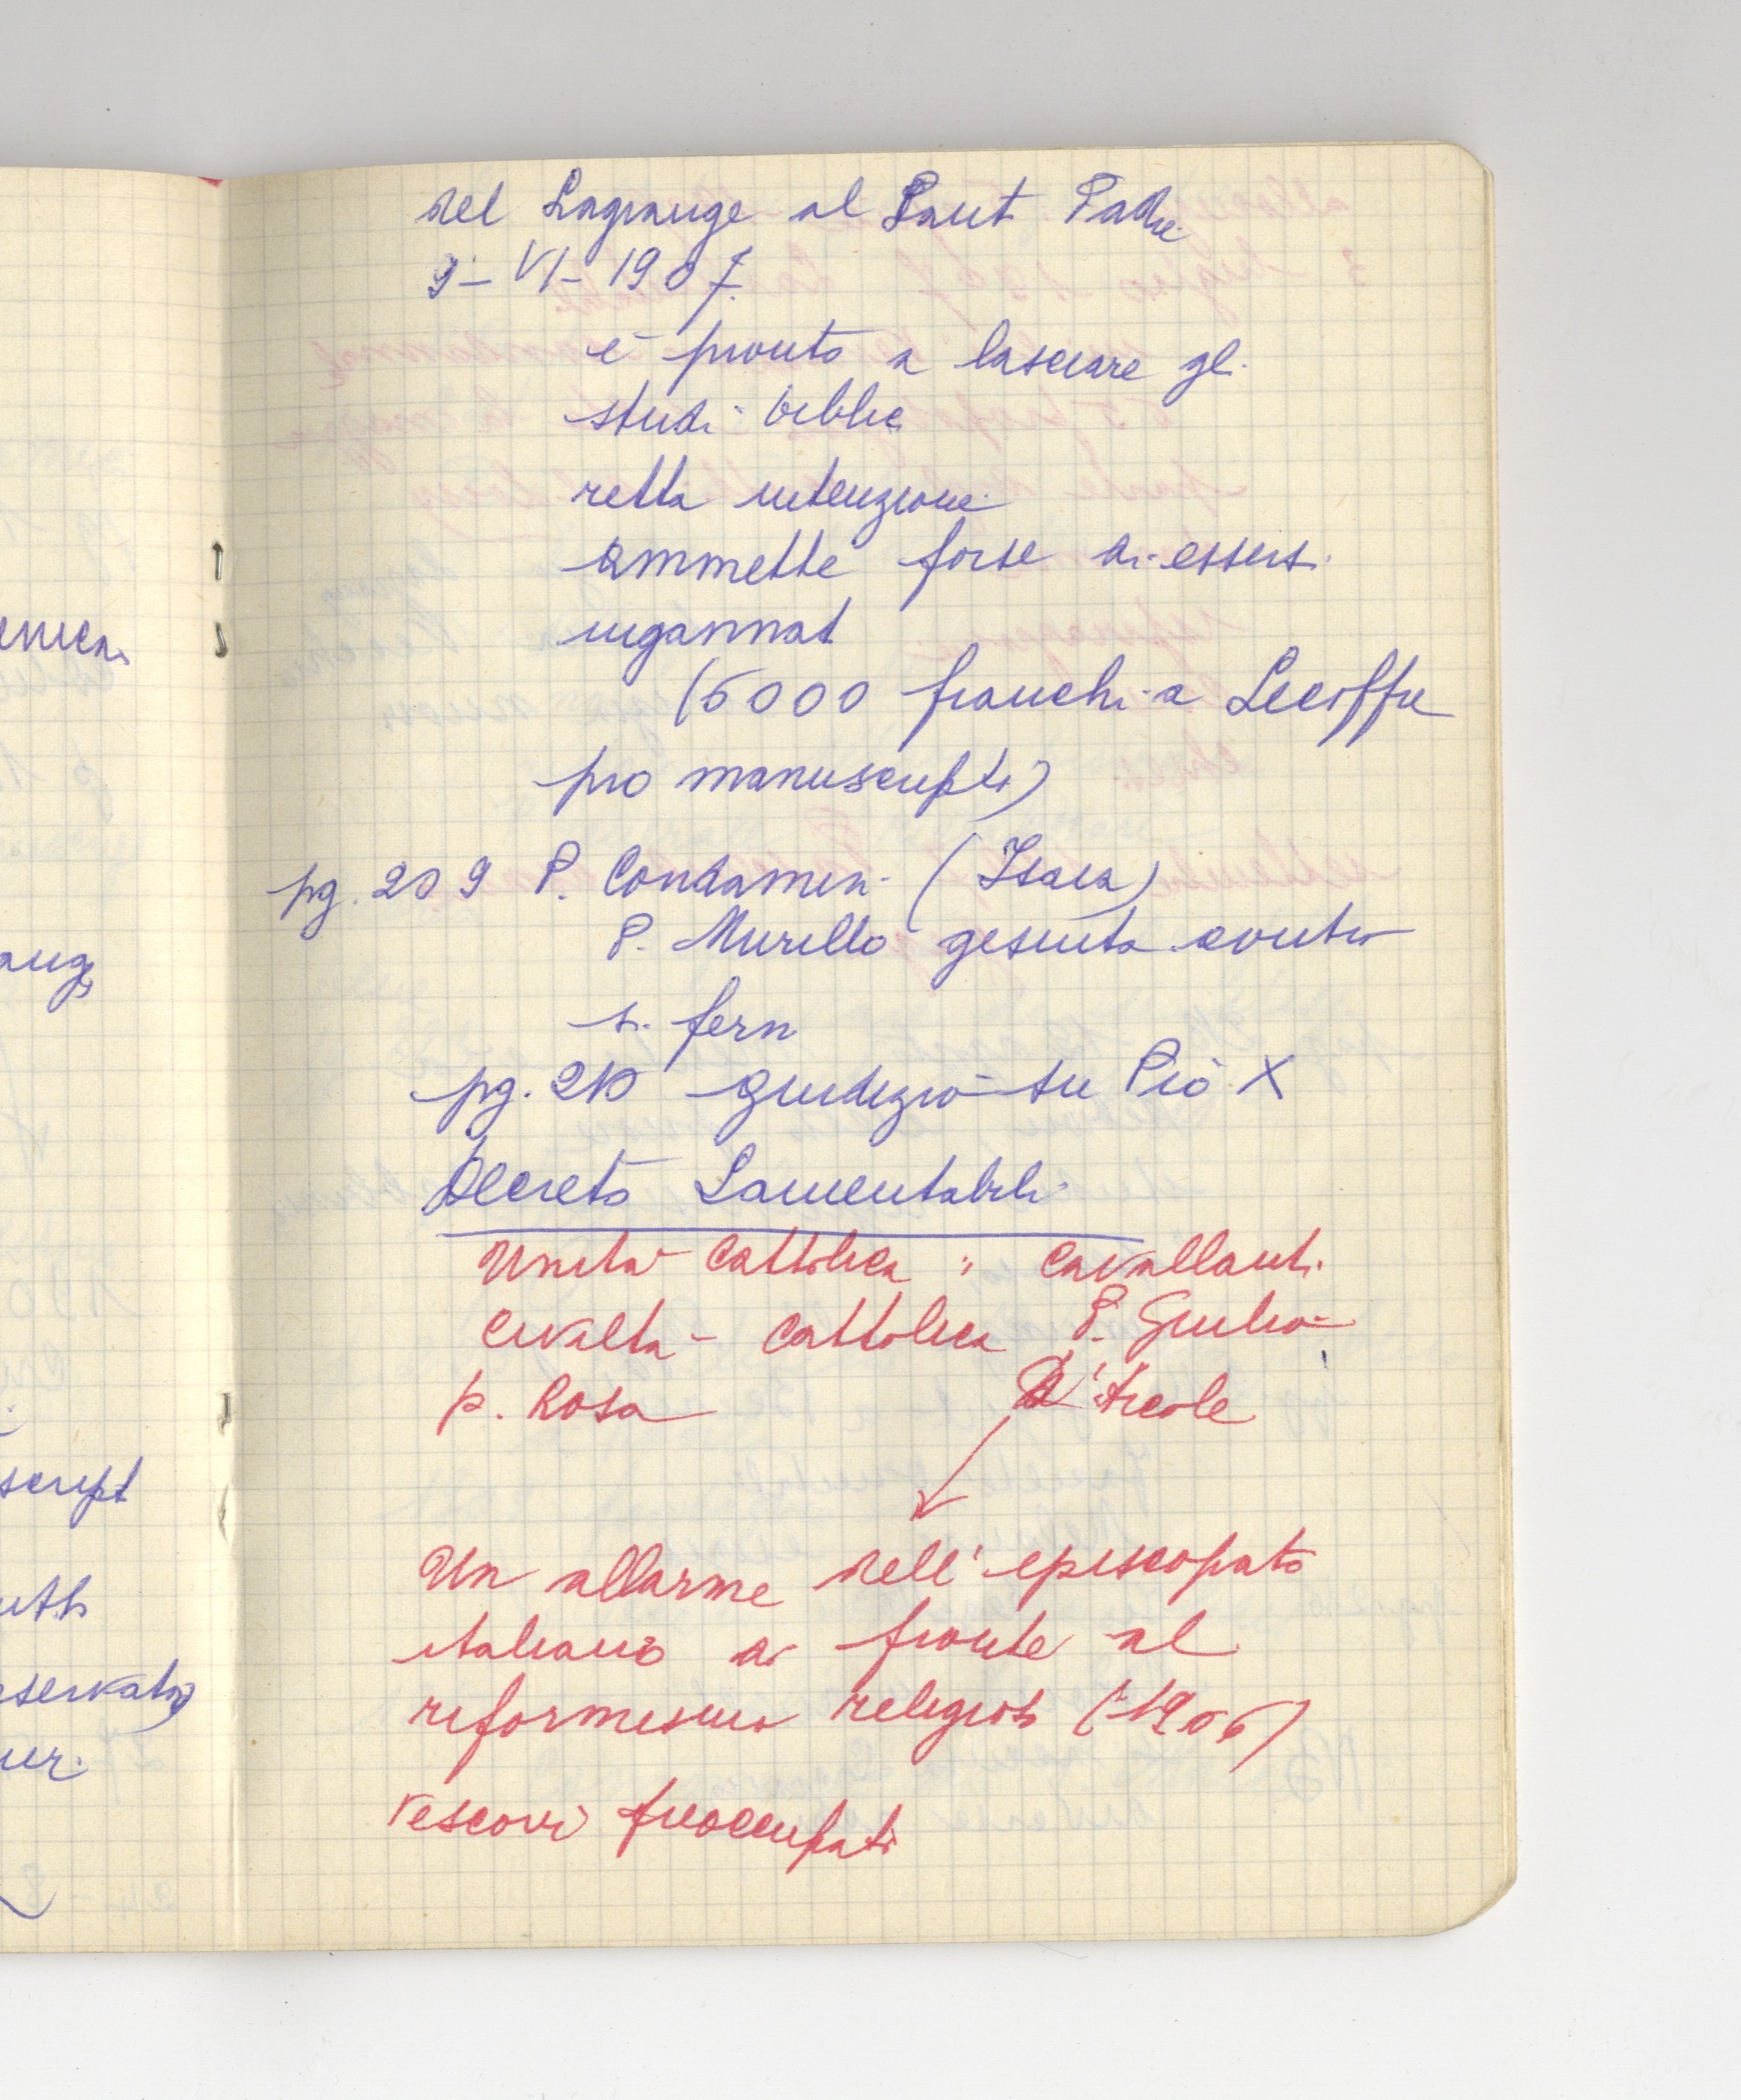 del Lagrange al Sant Padre
9-VI-1907.
è pronto a lasciare gl.
studi biblic
retta intenzione.
ammette forse di essers.
ingannat
(5000 franchi a Lecoffre
pro manuscripti)
pg. 209 P. Condamin. (Isaia)
P. Murillo gesuita contro
s. fern
pg. 210 giudizio su Pio X
Decreto Lamentabili
Unità Cattolica : Cavallanti
Civiltà - Cattolica P. Giulio
p. Rosa D'Arcole
Un allarme dell'episcopato
italiano di fronte al
reformismo religioso (1906)
Vescovi preoccupati
enica
ang
script
utto
servato)
ur.